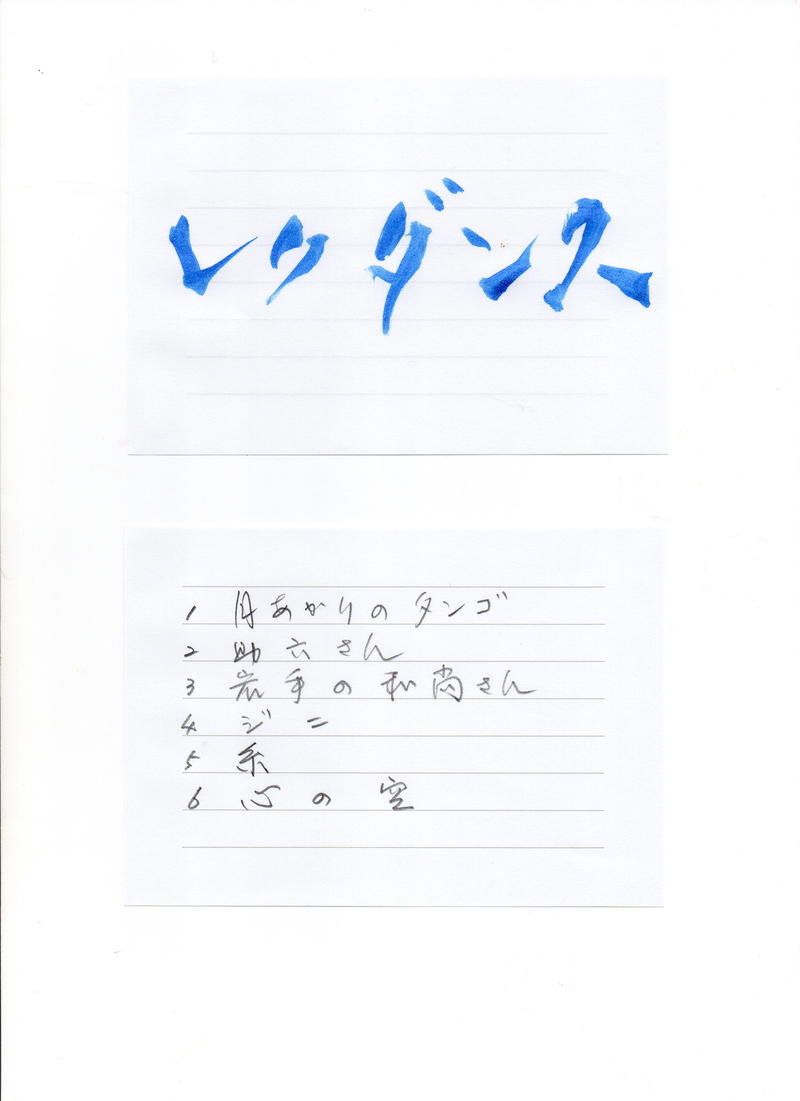 レクダンス
1 月あかりのタンゴ
2 助六さん
3 岩手の和尚さん
4 ジニー
5 糸
6 心の空